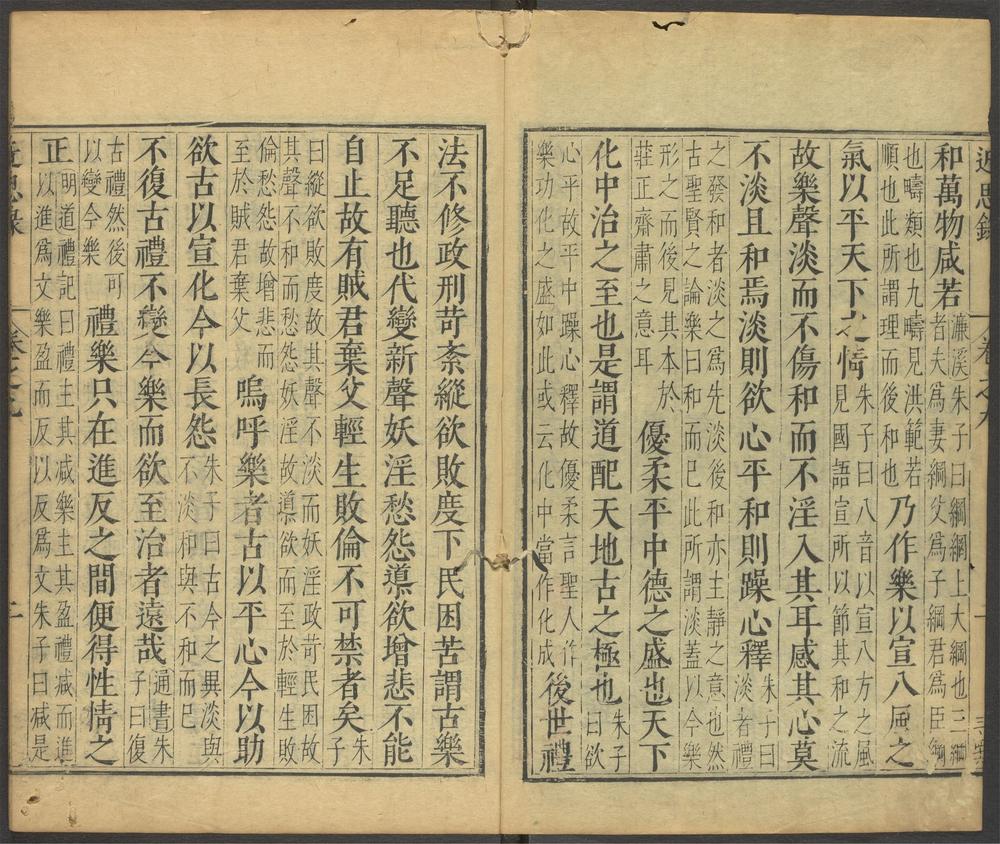 近思錄 卷之九 一
和萬物咸若濂溪朱子曰綱綱上大綱也三綱
者夫為妻綱父為子綱君為臣綱
也疇類也九疇見洪範若
順也此所謂理而後和也乃作樂以宣八風之
氣以平天下之情朱子曰八音以宣八方之風
見國語宣所以節其和之流
故樂聲淡而不傷和而不淫入其耳感其心莫
不淡且和焉淡則欲心平和則躁心釋朱子曰
淡者禮
之發和者淡之為先淡後和亦主靜之意也然
古聖賢之論樂曰和而已此所謂淡蓋以今樂
形之而後見其本於
莊正齊肅之意耳優柔平中德之盛也天下
化中治之至也是謂道配天地古之極也朱子
曰欲
心平故平中躁心釋故優柔言聖人作
樂功化之盛如此或云化中當作化成後世禮
法不修政刑苛紊縱欲敗度下民困苦謂古樂
不足聽也代變新聲妖淫愁怨導欲增悲不能
自止故有賊君棄父輕生敗倫不可禁者矣朱
子
曰縱欲敗度故其聲不淡而妖淫政苛民困故
其聲不和而愁怨妖淫故導欲而至於輕生敗
倫愁怨故增悲而
至於賊君棄父嗚呼樂者古以平心今以助
欲古以宣化今以長怨朱子曰古今之異淡與
不淡和與不和而已
不復古禮不變今樂而欲至治者遠哉通書朱
子曰復
古禮然後可
以變今樂禮樂只在進反之間便得性情之
正明道禮記曰禮主其減樂主其盈禮減而進
以進為文樂盈而反以反為文朱子曰減是
近思錄 卷之九 二